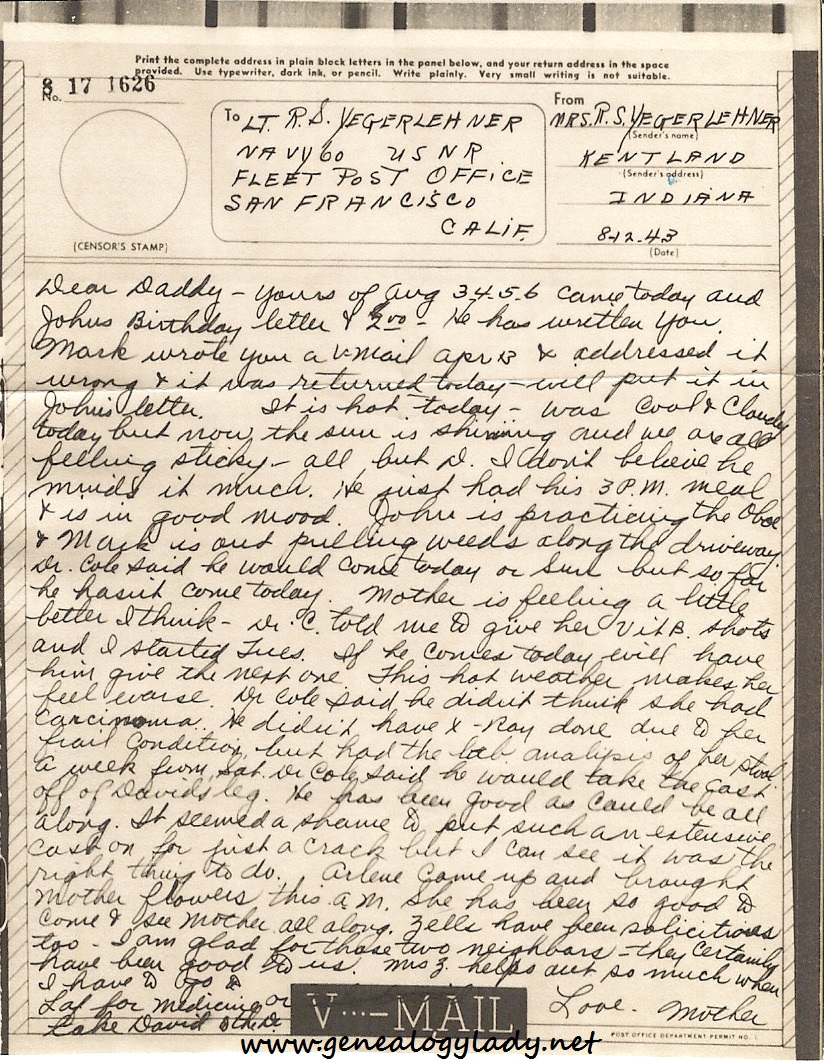 Print the complete address in plain block letters in the panel below, and your return address in the space
provided. Use typewriter, dark ink, or pencil. Write plainly. Very small writing is not suitable.
8 17 1626
No.
To LT. R.S. YEGERLEHNER
NAVY 60 USNR
FLEET POST OFFICE
SAN FRANCISCO
CALIF.
From
MRS. R.S. YEGERLEHNER
(Sender's name)
KENTLAND
(Sender's address)
INDIANA
8-12-43
(Date)
(CENSOR'S STAMP)
Dear Daddy - yours of Aug 3 4 5 6 came today and
Johns Birthday letter & 2.00 - He has written you.
Mark wrote you a V-Mail Apr 13 & addressed it
wrong & it was returned today - will put it in
John's letter. It is hot today - was cool & cloudy
today but now the sun is shining and we are all
feeling sticky - all but D. I don't believe he
minds it much. He just had his 3 P.M. meal
& is in good mood. John is practicing the oboe
& Mark is out pulling weeds along the driveway.
Dr. Cole said he would come today or Sun but so far
he hasn't come today. Mother is feeling a little
better I think - Dr. C. told me to give her Vit B. shots
and I started Tues. If he comes today will have
him give the next one. This hot weather makes her
feel worse. Dr Cole said he didn't think she had
carcinoma. He didn't have X-Ray done due to her
frail condition, but had the lab analysis of her stool.
A week from Sat. Dr Cole said he would take the cast
off of Davids leg. He has been good as could be all
along. It seemed a shame to put such an extensive
cast on for just a crack but I can see it was the
right thing to do. Arlene came up and brought
Mother flowers this A.M. She has been so good to
come & see Mother all along. Zells have been solicitious
too - I am glad for those two neighbors - they certainly
have been good to us. Mrs Z. helps out so much when
I have to go to
Laf for medicine or
take David to the Dr
Love. Mother
V···–MAIL
POST OFFICE DEPARTMENT PERMIT NO. 1
www.genealogylady.net